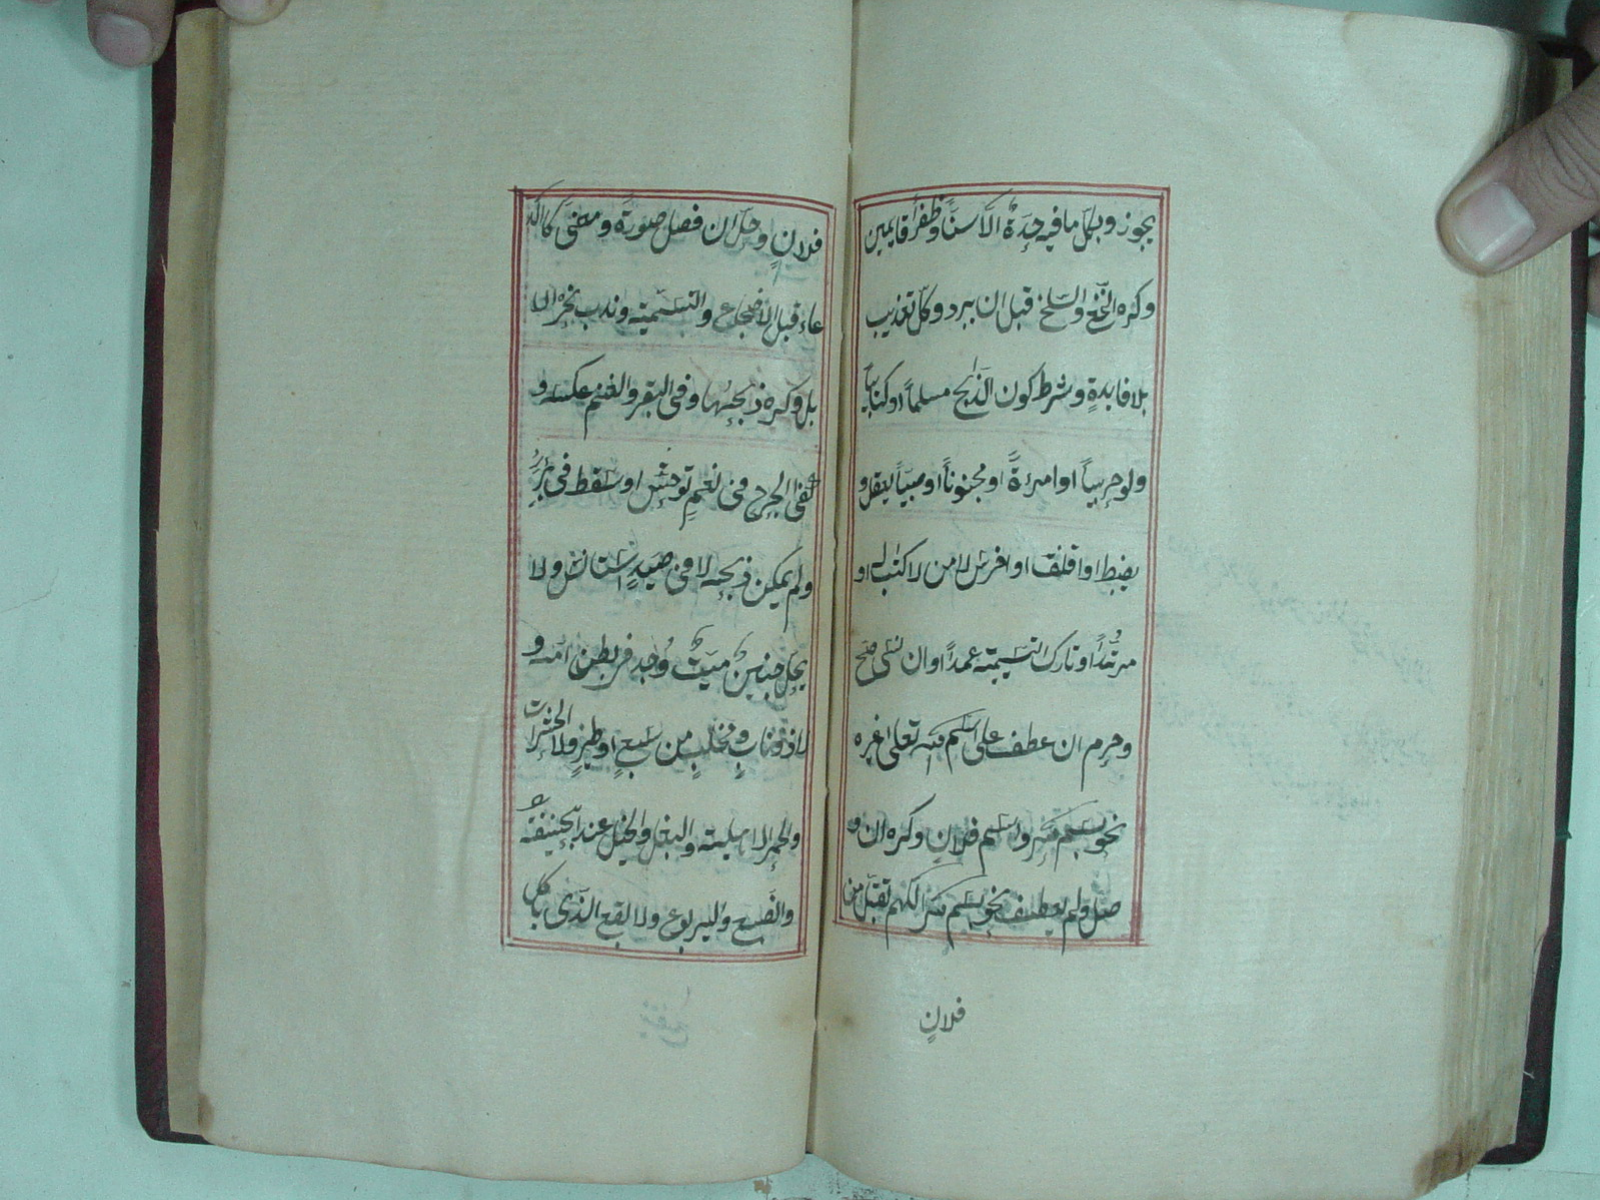 يجوز وبكل ما فيه حِدَةٌ الّا سنًّا وظفرا قايمين
وكره النّخع والسّلخ قبل ان يبرد وكلّ تعذيب
بلا فايدةٍ وشرط كون الذّابح مسلماً او كتابيّا
ولو حربيّاً او امرءةً او مجنوناً او صبيّاً يعقل و
يضبط او اقلف او اخرس لا من لا كتاب له او
مرتدًّا او تارك التسميته عمداً او ان نسى صحّ
وحرم ان عطف على اسم الله تعالى غيره
نحو بسم الله واسم فلانٍ وكره ان و
صل ولم يعطف نحو بسم الله اللهم تقبل من
فلانٍ
فلانٍ وحلّ ان فصل صورةً ومعنىً كالد
عاء قبل الاضجاع والتسميته وندب نحر الا
بل وكره ذبحها وفى البقر والغنم عكسه و
كفى الجرح فى نعمٍ توحّش او سقط فى بئرٍ
ولم يمكن ذبحه لا فى صيدٍ استانس ولا
يحل جنينٌ ميّتٌ وُجد فى بطن امّه و
لا ذو نابٍ ومخلبٍ من سبعٍ او طيرٍ ولا الحشرات
والحمر الاهليته والبغل والخيل عند ابى حنيفة
والضّبع واليربوع ولا ابقع الّذى ياكل